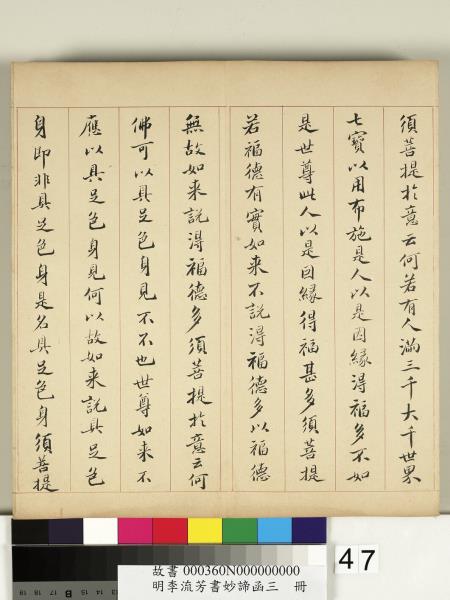 須菩提於意云何若有人滿三千大千世界
七寶以用布施是人以是因緣得福多不如
是世尊此人以是因緣得福甚多須菩提
若福德有實如来不說得福德多以福德
無故如来說得福德多須菩提於意云何
佛可以具足色身見不不也世尊如来不
應以具足色身見何以故如来說具足色
身即非具足色身是名具足色身須菩提
47
故書 000360N000000000
明李流芳書妙諦函三 冊